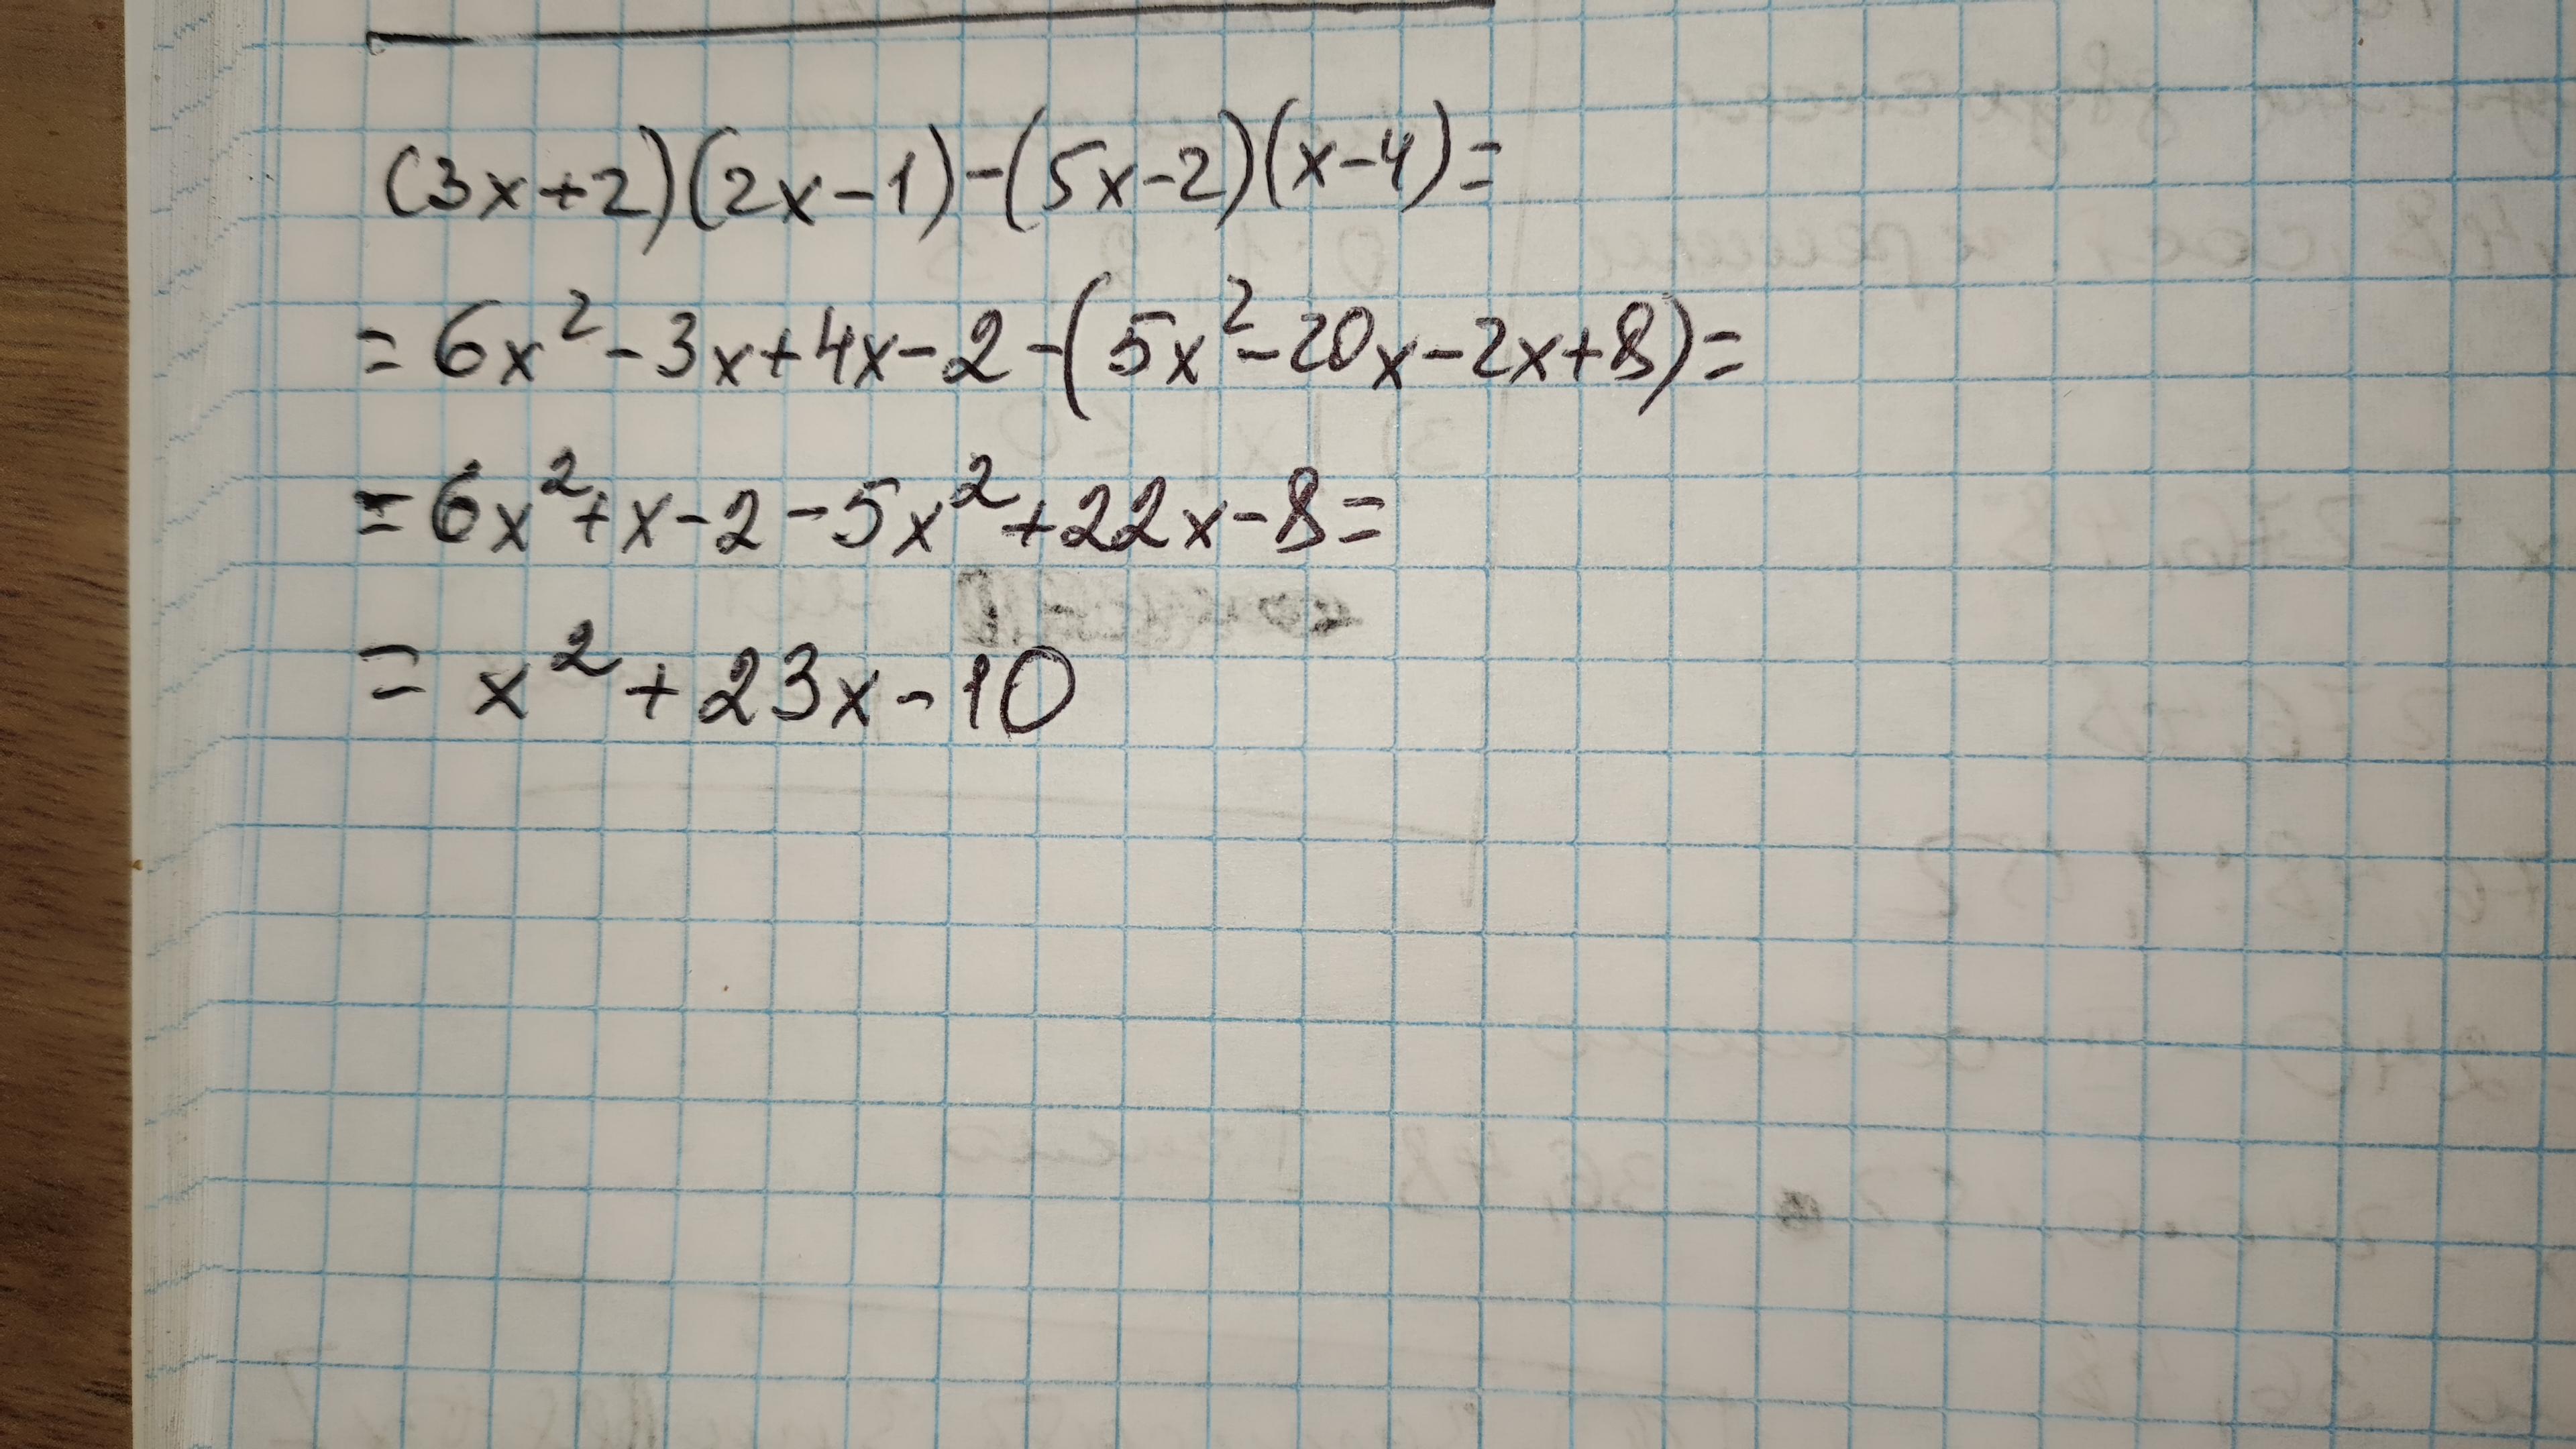 (3x+2)(2x-1)-(5x-2)(x-4)=
=6x²-3x+4x-2-(5x²-20x-2x+8)=
=6x²+x-2-5x²+22x-8=
=x²+23x-10